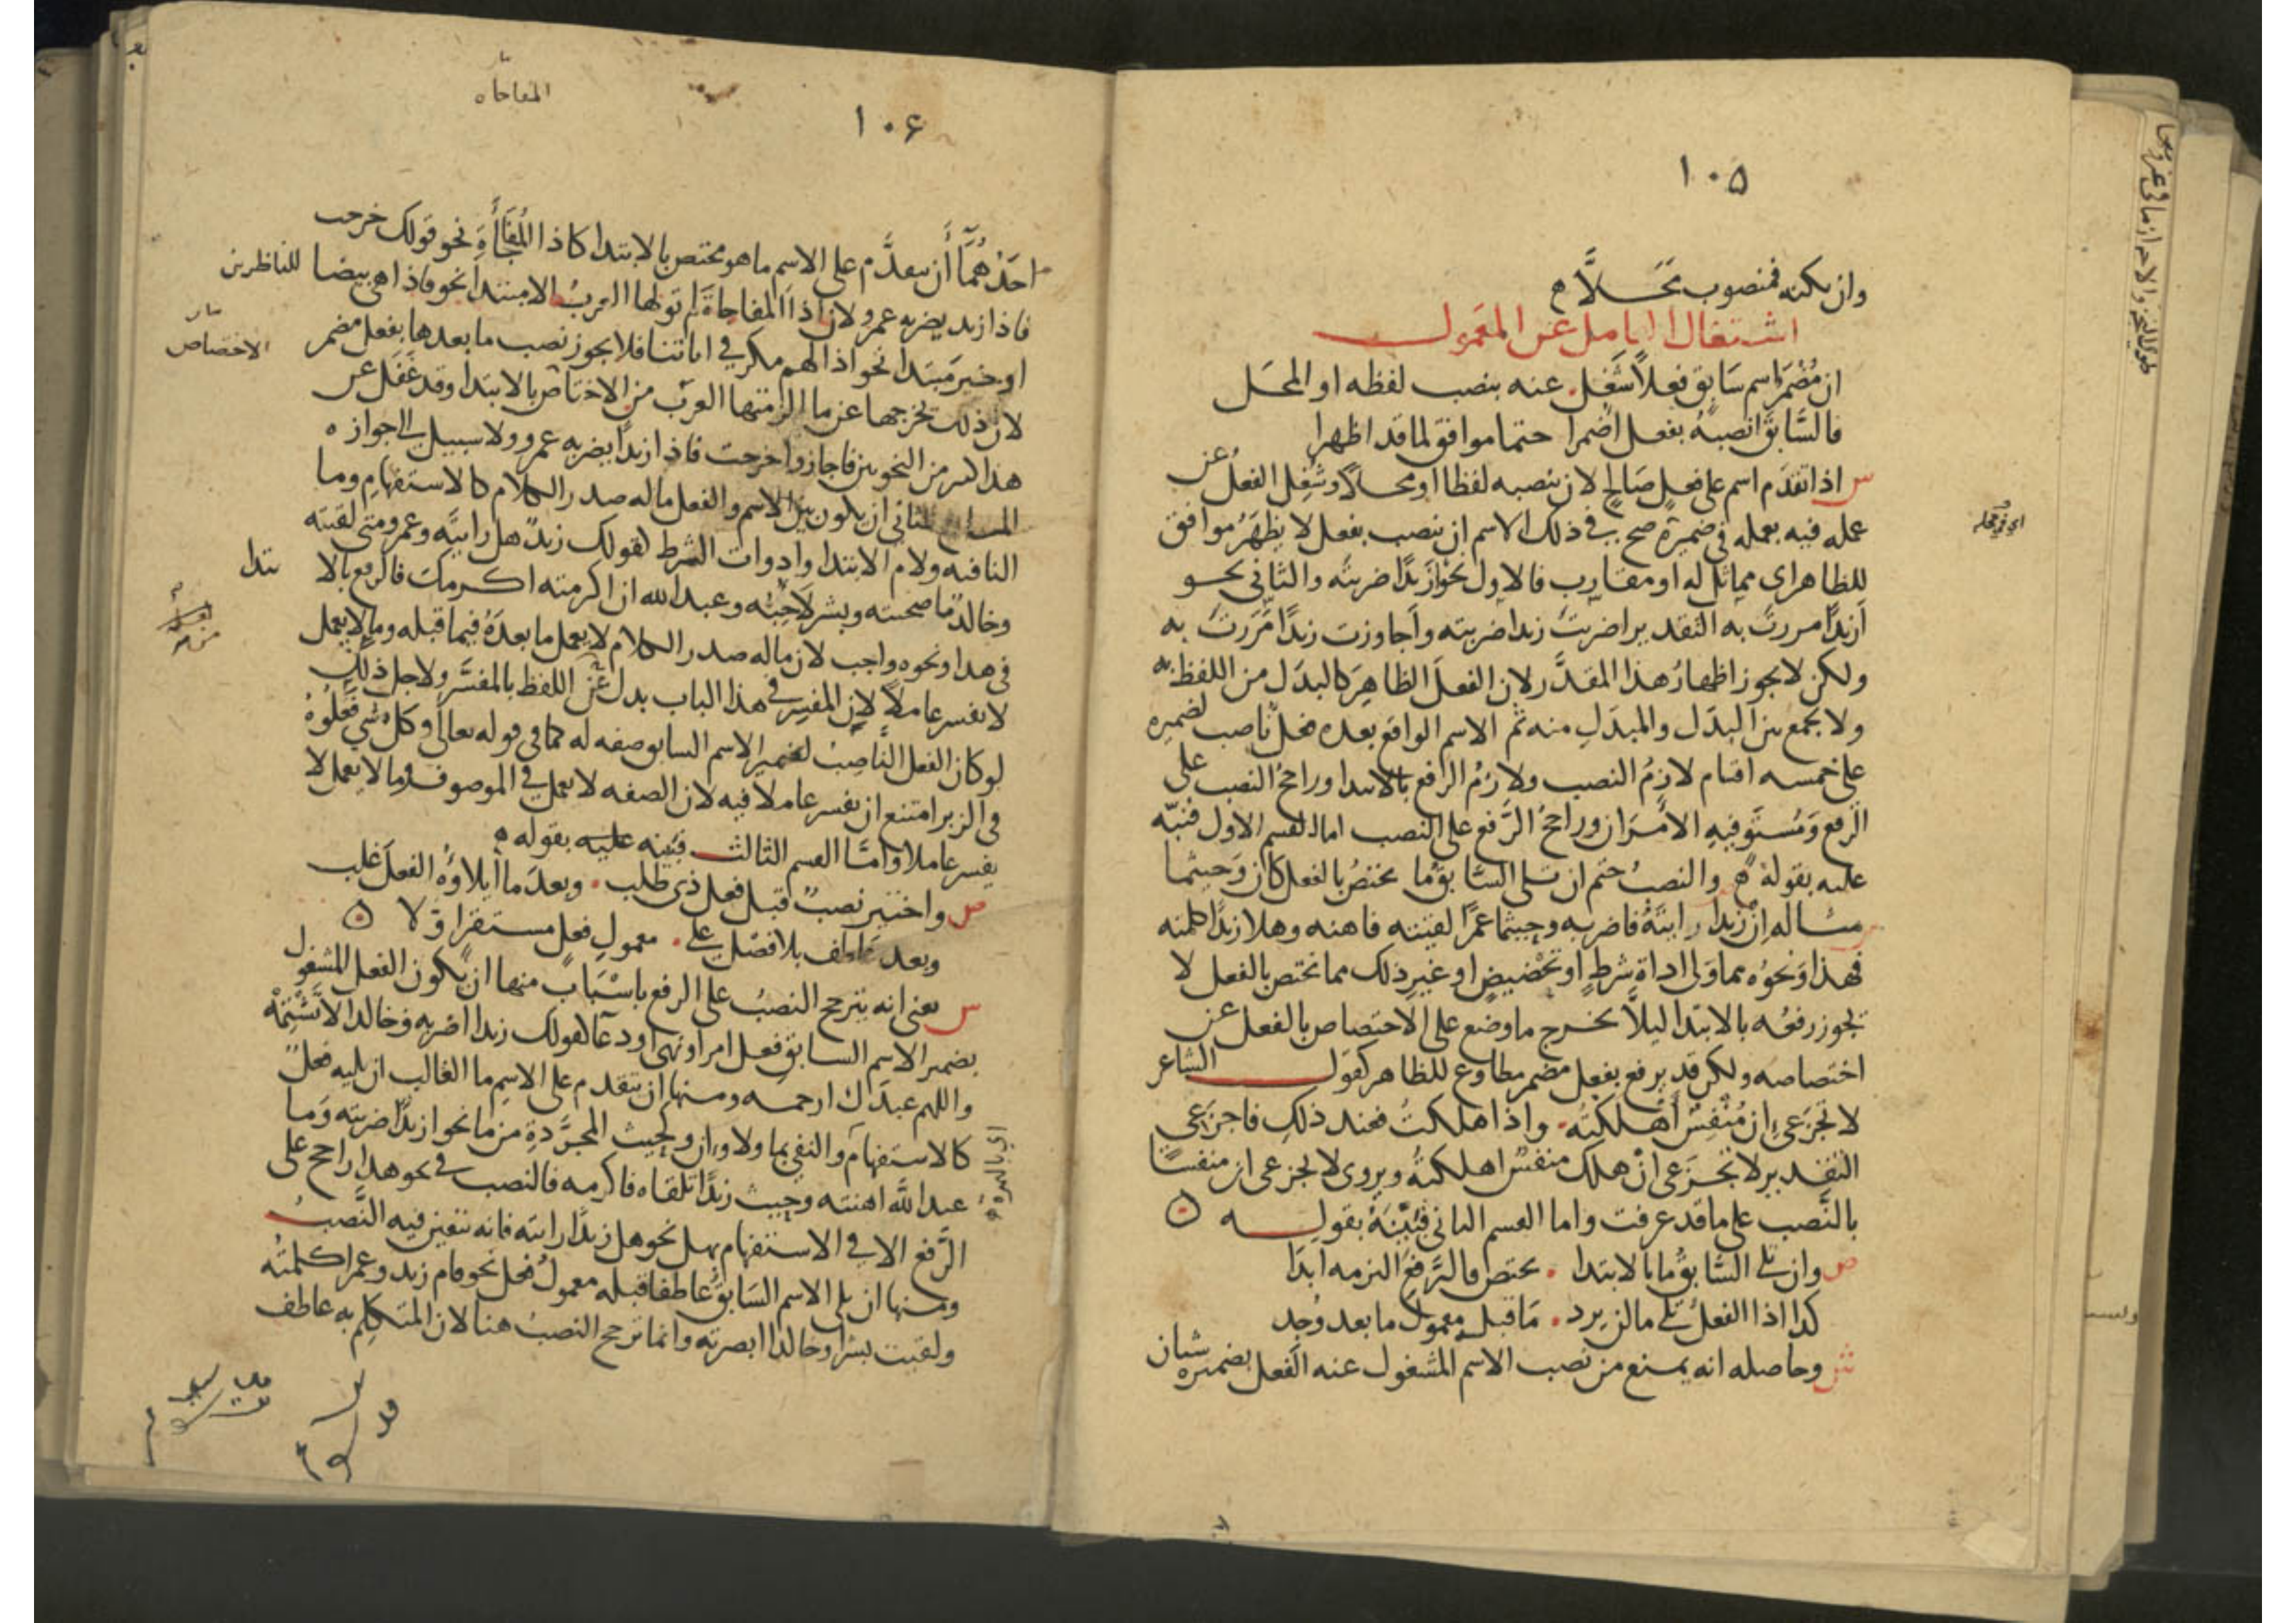 ١٠٥
وان يكنه فمنصوب محلا
اشتغال العامل عن المعمول
ان مضمر اسم سابق فعلا شغل . عنه بنصب لفظه او المحل
فالسابق انصبه بفعل اضمرا حتما موافق لما قد اظهرا
س اذا تقدم اسم على فعل صالح لان ينصبه لفظا او محلا وشغل الفعل عن
عمله فيه بعمله في ضميره صح في ذلك الاسم ان ينصب بفعل لا يظهر موافق
للظاهر اى مماثل له او مقارب فالاول نحو ازيدا ضربته والثانى نحو
ازيدا مررت به التقدير اضربت زيدا ضربته وأجاوزت زيدا مررت به
ولكن لا يجوز اظهار هذا المقدر لان الفعل الظاهر كالبدل من اللفظ به
ولا يجمع بين البدل والمبدل منه ثم الاسم الواقع بعده فعل ناصب لضميره
على خمسه اقسام لازم النصب ولازم الرفع بالابتدا وراجح النصب على
الرفع ومستو فيه الأمران وراجح الرفع على النصب اما القسم الاول فنبه
عليه بقوله والنصب حتم ان تلى السابق ما يختص بالفعل كان وحيثما
مثاله ان زيدا رايته فاضربه وحيثما عمرا لقيته فاهنه وهلا زيدا كلمته
فهذا ونحوه مما ولى اداة شرط او تحضيض او غير ذلك مما يختص بالفعل لا
يجوز رفعه بالابتدا ليلا يخرج ما وضع على الاختصاص بالفعل عن
اختصاصه ولكن قد يرفع بفعل مضمر مطاوع للظاهر كقول الشاعر
لا تجزعى ان منفس أهلكته . واذا هلكت فعند ذلك فاجزعى
التقدير لا تجزعى ان هلك منفس اهلكته ويروى لا تجزعى ان منفسا
بالنصب على ما قد عرفت واما القسم الثانى فبينه بقوله
ص وان تلى السابق ما بالابتدا . يختص فالرفع التزمه ابدا
كذا اذا الفعل تلى ما لن يرد . ما قبل معمول ما بعد وجد
ش وحاصله انه يمنع من نصب الاسم المشغول عنه الفعل بضميره شيان
١٠٦
المفاجاه
احدهما أن يتقدم على الاسم ما هو مختص بالابتدا كاذا المفاجأة نحو قولك خرجت
فاذا زيد يضربه عمرو لان اذا المفاجاة لم تولها العرب الا مبتدا نحو فاذا هى بيضا للناظرين
او خبر مبتدا نحو اذا لهم مكر في اياتنا فلا يجوز نصب ما بعدها بفعل مضمر
الاختصاص
لان ذلك يخرجها عن ما الزمتها العرب من الاختاص بالابتدا وقد غفل عن
هذا كثير من النحويين فاجازوا خرجت فاذا زيدا يضربه عمرو ولا سبيل الى جوازه
المانع الثاني ان يكون بين الاسم والفعل ما له صدر الكلام كالاستفهام وما
النافيه ولام الابتدا وادوات الشرط كقولك زيد هل رايته وعمرو متى لقيته
وخالد ما صحبته وبشر لاحبه وعبد الله ان اكرمته اكرمك فالرفع بالا بتدا
في هذا ونحوه واجب لان ما له صدر الكلام لا يعمل ما بعده فيما قبله وما لا يعمل
لا يفسر عاملا لان المفسر في هذا الباب بدل عن اللفظ بالمفسر ولاجل ذلك
لو كان الفعل الناصب لضمير الاسم السابق صفه له كما في قوله تعالى وكل شي فعلوه
في الزبر امتنع ان يفسر عاملا فيه لان الصفه لا تعمل في الموصوف وما لا يعمل لا
يفسر عاملا واما القسم الثالث فبينه عليه بقوله
ص واختير نصب قبل فعل ذى طلب . وبعد ما ايلاؤه الفعل غلب
وبعد عاطف بلا فصل على . معمول فعل مستقر اولا
س يعنى انه يترجح النصب على الرفع باسباب منها ان يكون الفعل المشغول
بضمير الاسم السابق فعل امر او نهى او دعا كقولك زيدا اضربه وخالدا لا تشتمه
واللهم عبدك ارحمه ومنها ان يتقدم على الاسم ما الغالب ان يليه فعل
كالاستفهام والنفى بما ولا وان وحيث المجردة من ما نحو ازيدا ضربته وما
عبد الله اهنته وحيث زيدا تلقاه فاكرمه فالنصب في نحو هذا راجح على
الرفع الا في الاستفهام بهل نحو هل زيدا رايته فانه يتعين فيه النصب
ومنها ان يلى الاسم السابق عاطفا قبله معمول فعل نحو قام زيد وعمرا كلمته
ولقيت بشرا وخالدا ابصرته وانما ترجح النصب هنا لان المتكلم به عاطف